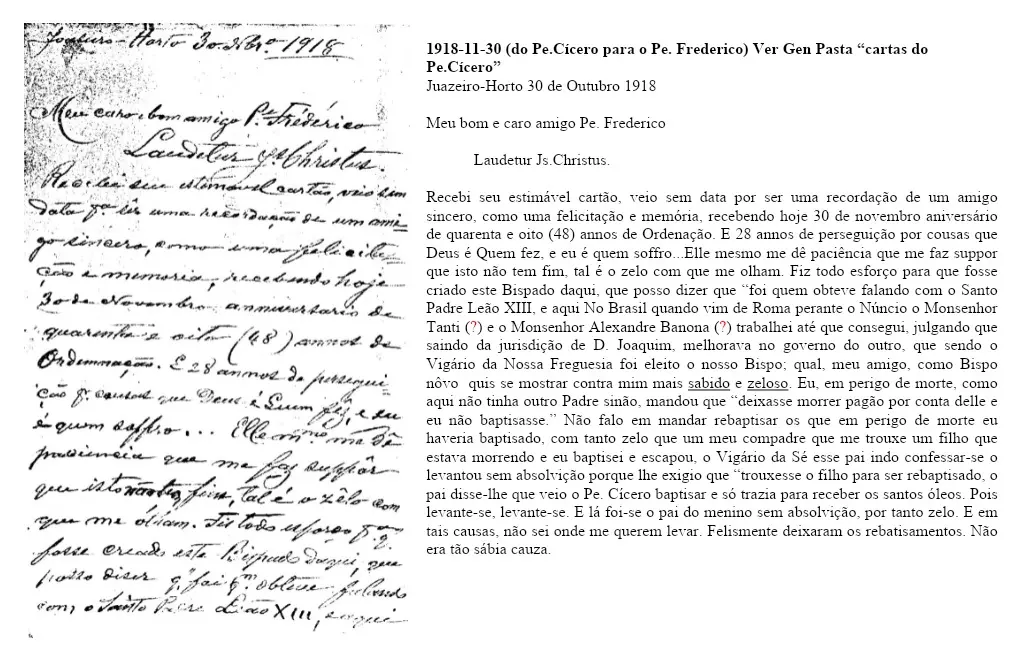 Joaseiro-Horto 30 de Nbrº 1918
Meu caro e bom amigo Pe Fréderico
Laudetur Js Christus.
Recebi seu estimavel cartão, veio sem
data pr ser uma recordação de um ami-
go sincero, como uma felicita-
ção e memoria, recebendo hoje
30 de Novembro anniversario de
quarenta e oito (48) annos de
Ordemnação. E 28 annos de persegui-
ção pr causas que Deus é Quem fez, e eu
é quem soffro... Elle mmo me dê
paciencia que me faz suppôr
que isto não tem fim, tal é o zêlo com
que me ólham. Fis todo esforço pa q.
fosse creado este Bispado daqui, que
posso diser q. foi qm obteve fallando
com o Santo Padre Leão XIII, e aqui
1918-11-30 (do Pe.Cícero para o Pe. Frederico) Ver Gen Pasta “cartas do
Pe.Cícero”
Juazeiro-Horto 30 de Outubro 1918
Meu bom e caro amigo Pe. Frederico
Laudetur Js.Christus.
Recebi seu estimável cartão, veio sem data por ser uma recordação de um amigo
sincero, como uma felicitação e memória, recebendo hoje 30 de novembro aniversário
de quarenta e oito (48) annos de Ordenação. E 28 annos de perseguição por cousas que
Deus é Quem fez, e eu é quem soffro...Elle mesmo me dê paciência que me faz suppor
que isto não tem fim, tal é o zelo com que me olham. Fiz todo esforço para que fosse
criado este Bispado daqui, que posso dizer que “foi quem obteve falando com o Santo
Padre Leão XIII, e aqui No Brasil quando vim de Roma perante o Núncio o Monsenhor
Tanti (?) e o Monsenhor Alexandre Banona (?) trabalhei até que consegui, julgando que
saindo da jurisdição de D. Joaquim, melhorava no governo do outro, que sendo o
Vigário da Nossa Freguesia foi eleito o nosso Bispo; qual, meu amigo, como Bispo
nôvo quis se mostrar contra mim mais sabido e zeloso. Eu, em perigo de morte, como
aqui não tinha outro Padre sinão, mandou que “deixasse morrer pagão por conta delle e
eu não baptisasse.” Não falo em mandar rebaptisar os que em perigo de morte eu
haveria baptisado, com tanto zelo que um meu compadre que me trouxe um filho que
estava morrendo e eu baptisei e escapou, o Vigário da Sé esse pai indo confessar-se o
levantou sem absolvição porque lhe exigio que “trouxesse o filho para ser rebaptisado, o
pai disse-lhe que veio o Pe. Cícero baptisar e só trazia para receber os santos óleos. Pois
levante-se, levante-se. E lá foi-se o pai do menino sem absolvição, por tanto zelo. E em
tais causas, não sei onde me querem levar. Felismente deixaram os rebatisamentos. Não
era tão sábia cauza.